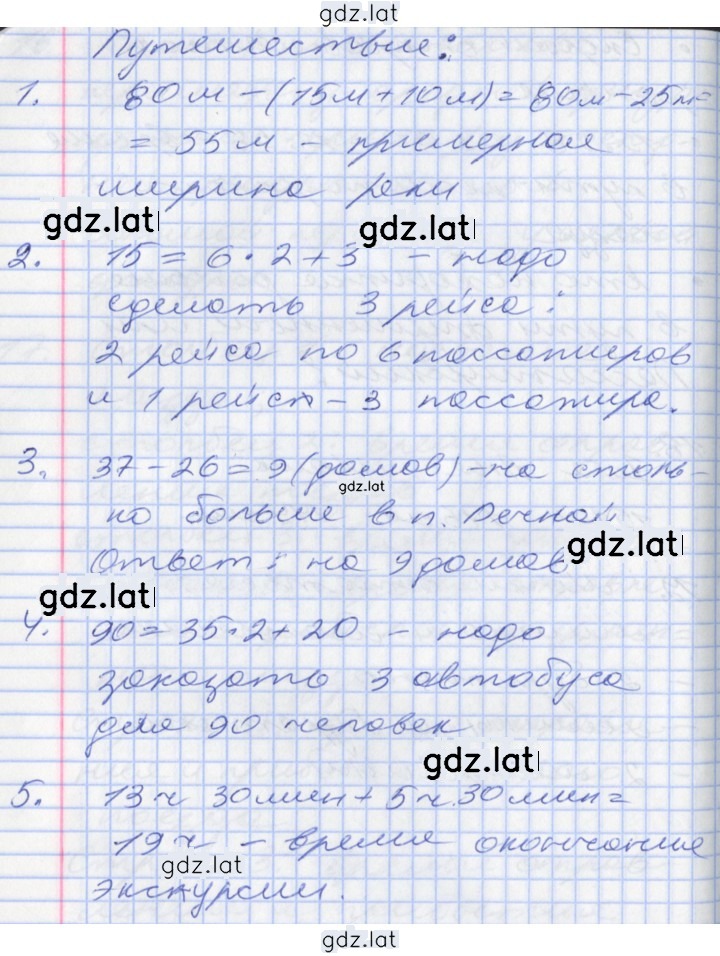 gdz.lat
Путешествие:
1. 80м - (15м + 10м) = 80м - 25м =
= 55м - примерная
ширина реки
gdz.lat
gdz.lat
2. 15 = 6 · 2 + 3 - надо
сделать 3 рейса:
2 рейса по 6 пассажиров
и 1 рейс - 3 пассажира.
3. 37 - 26 = 9 (домов) - на столь-
gdz.lat
ко больше в п. Речной
gdz.lat
Ответ: на 9 домов
gdz.lat
4. 90 = 35 · 2 + 20 - надо
заказать 3 автобуса
для 90 человек
gdz.lat
5. 13 ч 30 мин + 5 ч 30 мин =
19 ч - время окончание
gdz.lat
экскурсии.
gdz.lat